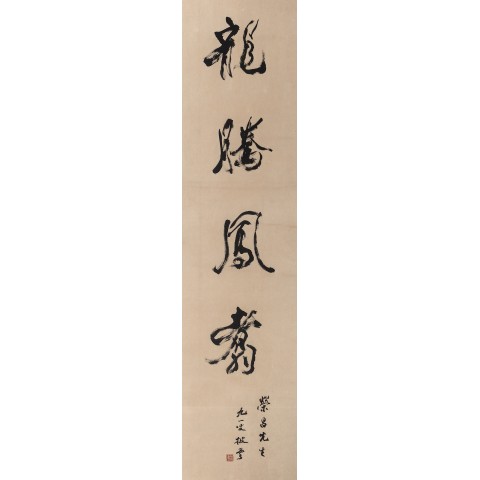 龍騰鳳翥
榮昌先生
九一叟